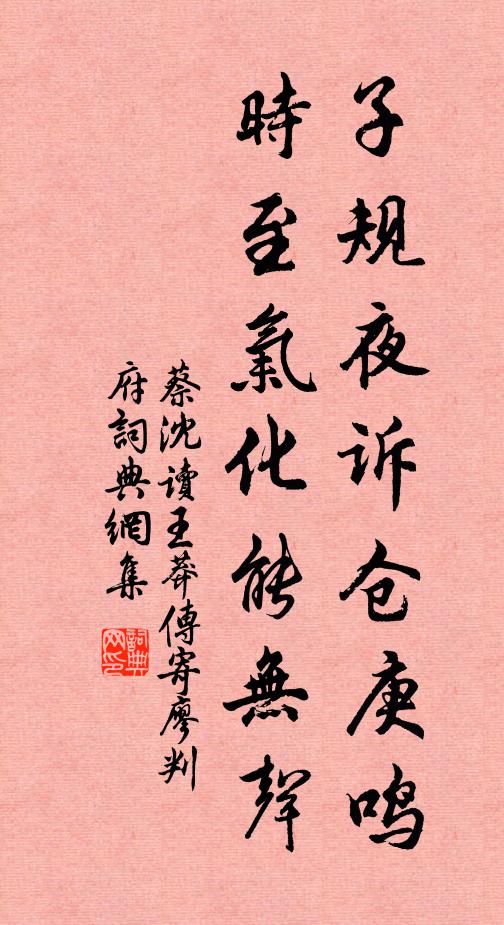 子规夜诉仓庚鸣
時至氣化能無聲
蔡沈讀王莽傳寄廖判
府詞典網集
詞典
网印